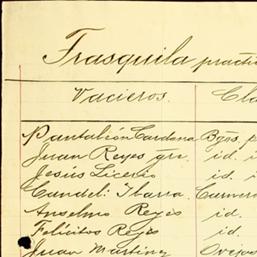 Trasquila practi
Vacieros. Cla
Pantaleón Cardona Bgos. p
Juan Reyes gre. id. i
Jesus Licerio id. i
Candelº Ibarra Carnero
Anselmo Reyes id.
Felicitos Reyes id.
Juan Martinez Ovejas